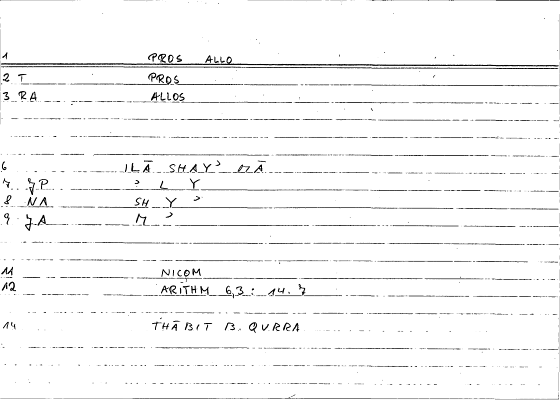 1 PROS ALLO
2 T PROS
3 RA ALLOS
6 ILĀ SHAYʾ MĀ
7 JP ʾ L Y
8 NA SH Y ʾ
9 JA M ʾ
11 NICOM
12 ARITHM 6,3 : 14.7
14 THĀBIT B. QURRA